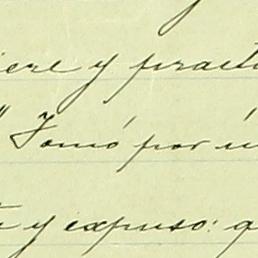 iere y practi
" Tomó por ú
y expuso: q